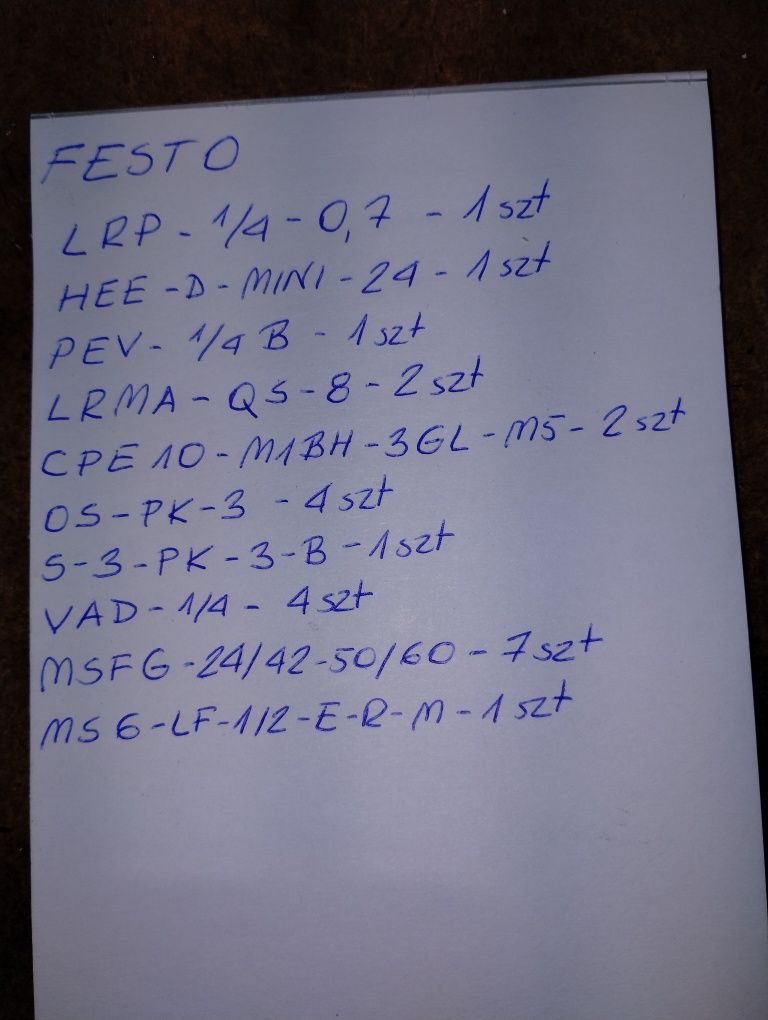 FESTO
LRP - 1/4 - 0,7 - 1 szt
HEE - D - MINI - 24 - 1 szt
PEV - 1/4 B - 1 szt
LRMA - QS - 8 - 2 szt
CPE 10 - M1BH - 3GL - M5 - 2 szt
OS - PK - 3 - 4 szt
S - 3 - PK - 3 - B - 1 szt
VAD - 1/4 - 4 szt
MSFG - 24/42 - 50/60 - 7 szt
MS6 - LF - 1/2 - E - R - M - 1 szt